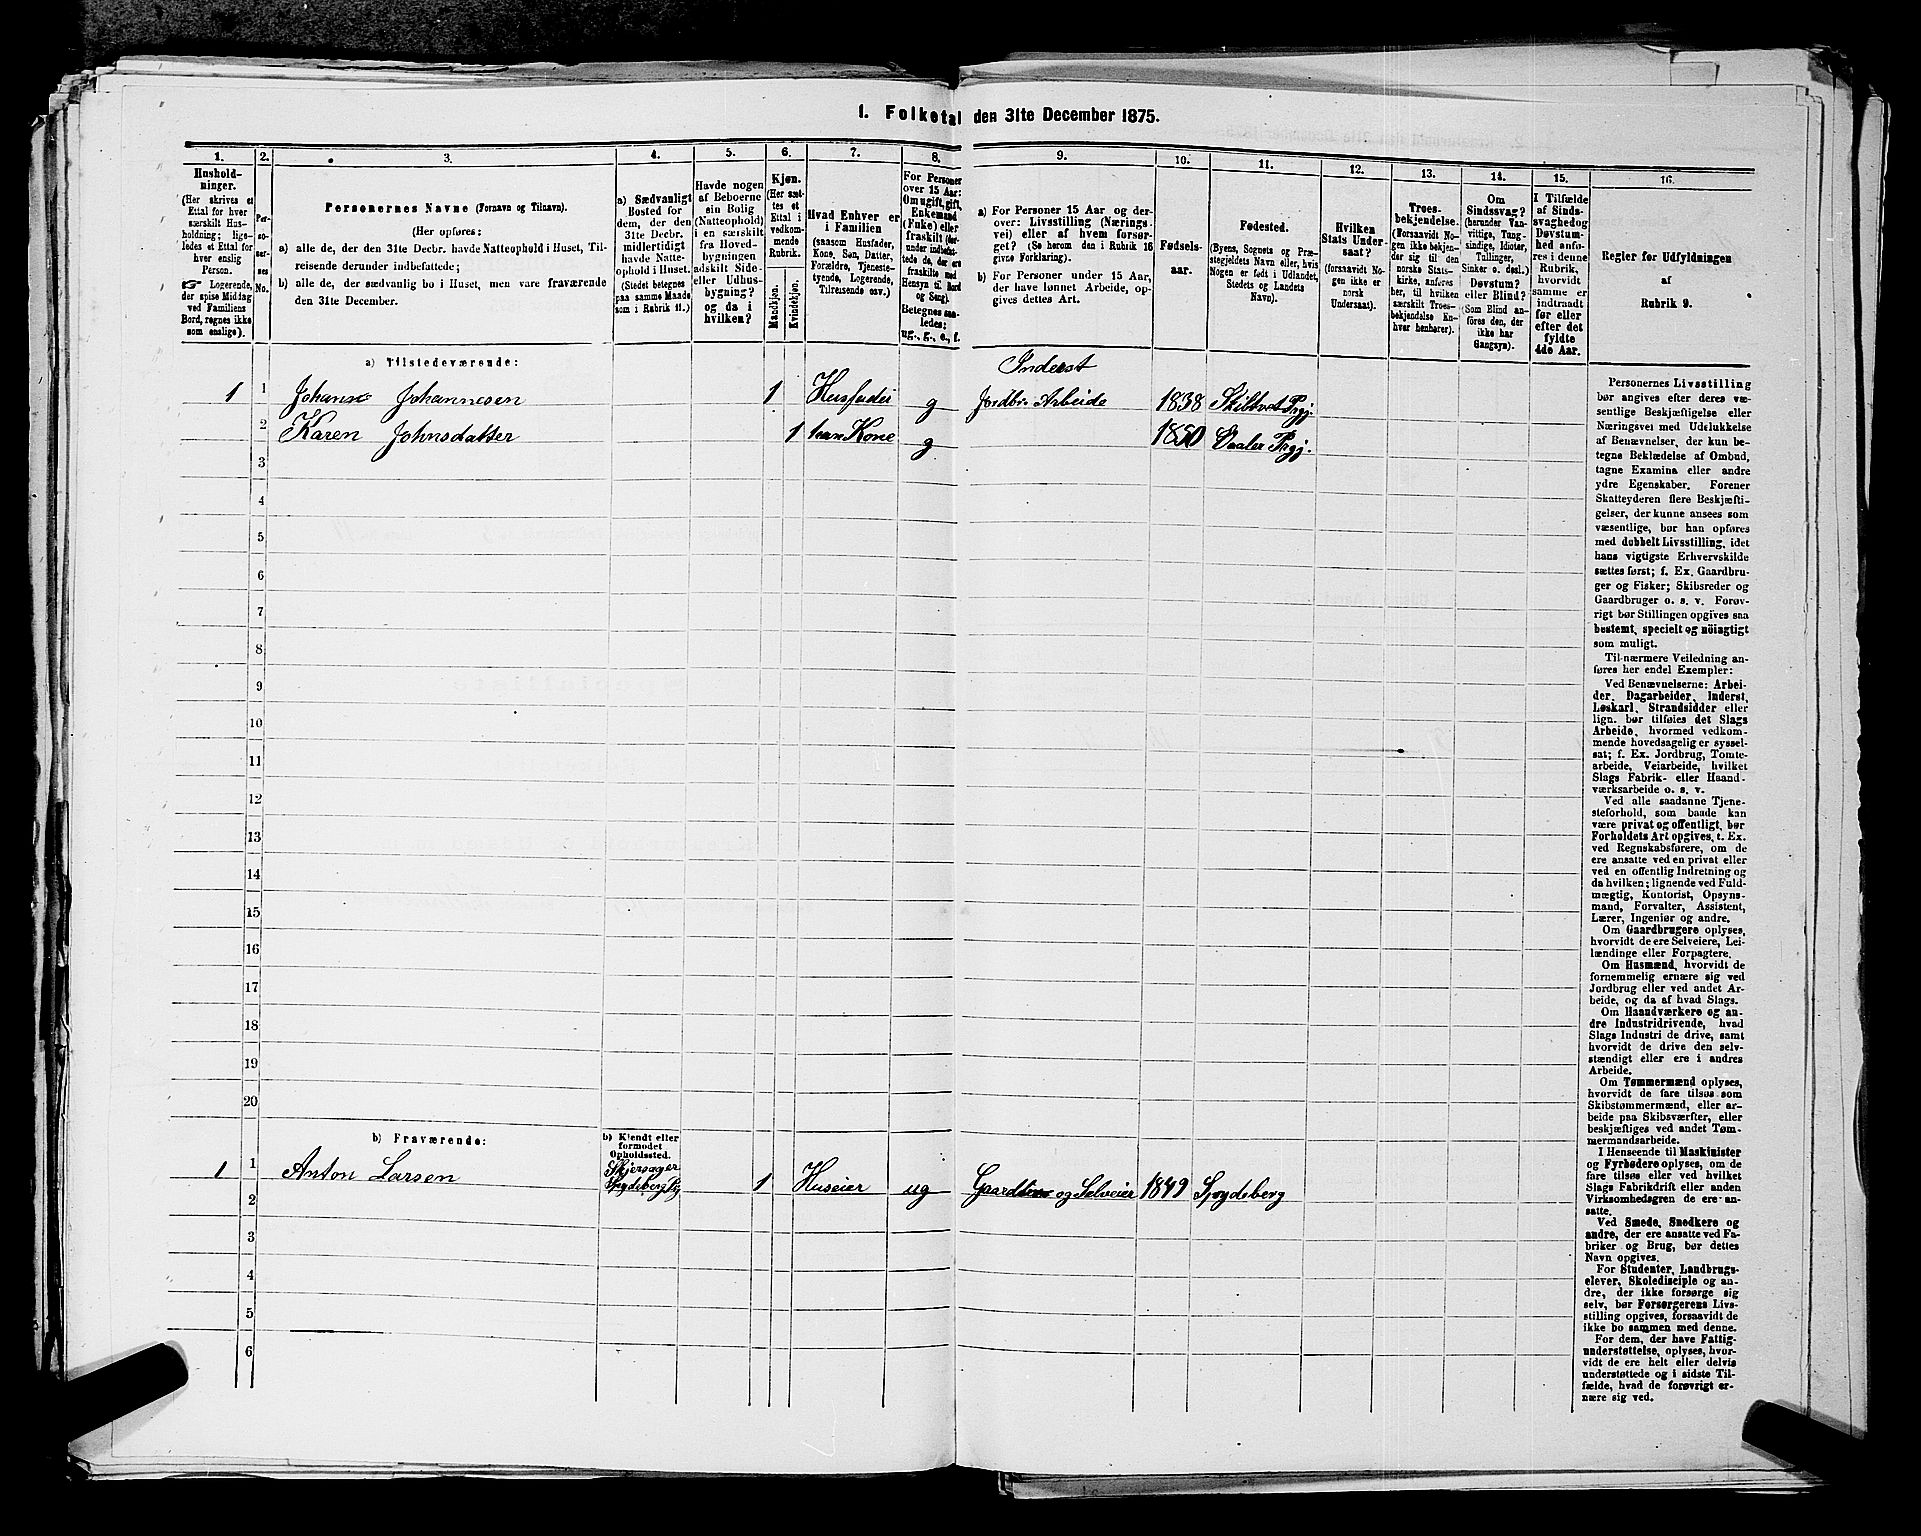 1. Folketal den 31te December 1875.
1. 2. 3. 4. 5. 6. 7. 8. 9. 10. 11. 12. 13. 14. 15. 16.
Husholdninger.
(Her skrives et
Ettal for hver
særskilt Husholdning;
ligeledes et Ettal for
hver enslig
Person.
☞ Logerende,
der spise Middag
ved Familiens
Bord, regnes ikke
som enslige).
Personernes No.
Personernes Navne (Fornavn og Tilnavn).
(Her opføres:
a) alle de, der den 31te Decbr. havde Natteophold i Huset, Tilreisende
derunder indbefattede;
b) alle de, der sædvanlig bo i Huset, men vare fraværende
den 31te December.
a) Sædvanligt
Bosted for
dem, der den
31te Decbr.
midlertidigt
havde Natteophold
i Huset.
(Stedet betegnes
paa samme Maade
som i Rubrik 11.)
Havde nogen
af Beboerne
sin Bolig
(Natteophold)
i en særskilt
fra Hovedbygningen
adskilt Side-
eller Udhusbygning?
og da i
hvilken?
Kjøn.
(Her sættes
et
Ettal i
vedkommende
Rubrik.
Mandkjøn.
Kvindekjøn.
Hvad Enhver er
i Familien
(saasom Husfader,
Kone, Søn, Datter,
Forældre, Tjenestetyende,
Logerende,
Tilreisende osv.)
For Personer
over 15 Aar:
Om ugift, gift,
Enkemand
(Enke) eller
fraskilt
Hensyn til Bord
og Seng).
Betegnes saaledes:
ug., g., e., f.
a) For Personer 15 Aar og derover:
Livsstilling (Næringsvei)
eller af hvem forsørget?
(Se herom den i Rubrik 16
givne Forklaring).
b) For Personer under 15 Aar,
der have lønnet Arbeide, opgives
dettes Art.
Fødselsaar.
Fødested.
(Byens, Sognets og Præstegjeldets
Navn eller, hvis
Nogen er født i Udlandet,
Stedets og Landets
Navn).
Hvilken
Stats Undersaat?
(forsaavidt Nogen
ikke er
norsk
Undersaat).
Troesbekjendelse.
(Forsaavidt Nogen
ikke bekjender
sig til den
norske Statskirke,
anføres
her, til hvilken
særskilt Troesbekjendelse
Enhver
henhører).
Om
Sindssvag?
(herunder Vanvittige,
Tungsindige,
Idioter,
Tullinger,
Sinker o. desl.)
Døvstum?
eller Blind?
(Som Blind anføres
den, der
ikke har
Gangsyn).
I Tilfælde
af Sindssvaghed
og Døvstumhed
anføres
i denne
Rubrik,
hvorvidt
samme er
indtraadt
før eller
efter det
fyldte
4de Aar.
Regler for Udfyldningen
af
Rubrik 9.
a) Tilstedeværende:
Inderst
1 1 Johans Johannesen 1 Husfader g Jordbr. Arbeide 1838 Skiltvet Prgj.
2 Karen Johnsdatter 1 hans Kone g 1850 Vaaler Prgj.
3
4
5
6
7
8
9
10
11
12
13
14
15
16
17
18
19
20
b) Fraværende:
b) Kjendt eller
formodet
Opholdssted.
Skjersager
Spydeberg Pgj
1 1 Anton Larsen 1 Huseier ug og Selveier 1849 Spydeberg
2
3
4
5
6
Personernes Livsstilling
bør angives efter deres væsentlige
Beskjæftigelse eller
Næringsvei med Udelukkelse
af Benævnelser, der kun betegne
Beklædelse af Ombud,
tagne Examina eller andre
ydre Egenskaber. Forener
Skatteyderen flere Beskjæftigelser,
der kunne ansees som
væsentlige, bør han opføres
med dobbelt Livsstilling, idet
hans vigtigste Erhvervskilde
sættes først; f. Ex. Gaardbruger
og Fisker; Skibsreder og
Gaardbruger o. s. v. Forøvrigt
bør Stillingen opgives saa
bestemt, specielt og nöiagtigt
som muligt.
Til nærmere Veiledning anføres
her endel Exempler:
Ved Benævnelserne: Arbeider,
Dagarbeider, Inderst,
Løskarl, Strandsidder eller
lign. bør tilføies det Slags
Arbeide, hvormed vedkommende
hovedsagelig er sysselsat;
f. Ex. Jordbrug, Tomtearbeide,
Veiarbeide, hvilket
Slags Fabrik- eller Haandværksarbeide
o. s. v.
Ved alle saadanne Tjenesteforhold,
som baade kan
være privat og offentligt, bør
Forholdets Art opgives, t. Ex.
ved Regnskabsførere, om de
ere ansatte ved en privat eller
ved en offentlig Indretning og
da hvilken; lignende ved Fuldmægtig,
Kontorist, Opsynsmand,
Forvalter, Assistent,
Lærer, Ingeniør og andre.
Om Gaardbrugere oplyses,
hvorvidt de ere Selveiere, Leilændinge
eller Forpagtere.
Om Husmænd, hvorvidt de
fornemmelig ernære sig ved
Jordbrug eller ved andet Arbeide,
og da af hvad Slags.
Om Haandværkere og andre
Industridrivende, hvad
Slags Industri de drive, samt
hvorvidt de drive den selvstændigt
eller ere i andres
Arbeide.
Om Tømmermænd oplyses,
hvorvidt de fare tilsøs som
Skibstømmermænd, eller arbeide
paa Skibsværfter, eller
beskjæftiges ved andet Tømmermandsarbeide.
I Henseende til Maskinister
og Fyrbødere oplyses, om de
fare tilsøs eller ved hvilket
Slags Fabrikdrift eller anden
Virksomhedsgren de ere ansatte.
Ved Smede, Snedkere og
andre, der ere ansatte ved Fabriker
og Brug, bør dettes
Navn opgives.
For Studenter, Landbrugselever,
Skoledisciple og andre,
der ikke forsørge sig
selv, bør Forsørgerens Livsstilling
opgives, forsaavidt de
ikke bo sammen med denne.
For dem, der have Fattigunderstøttelse,
oplyses, hvorvidt
de ere helt eller delvis
understøttede og i sidste Tilfælde,
hvad de forøvrigt ernære
sig ved.